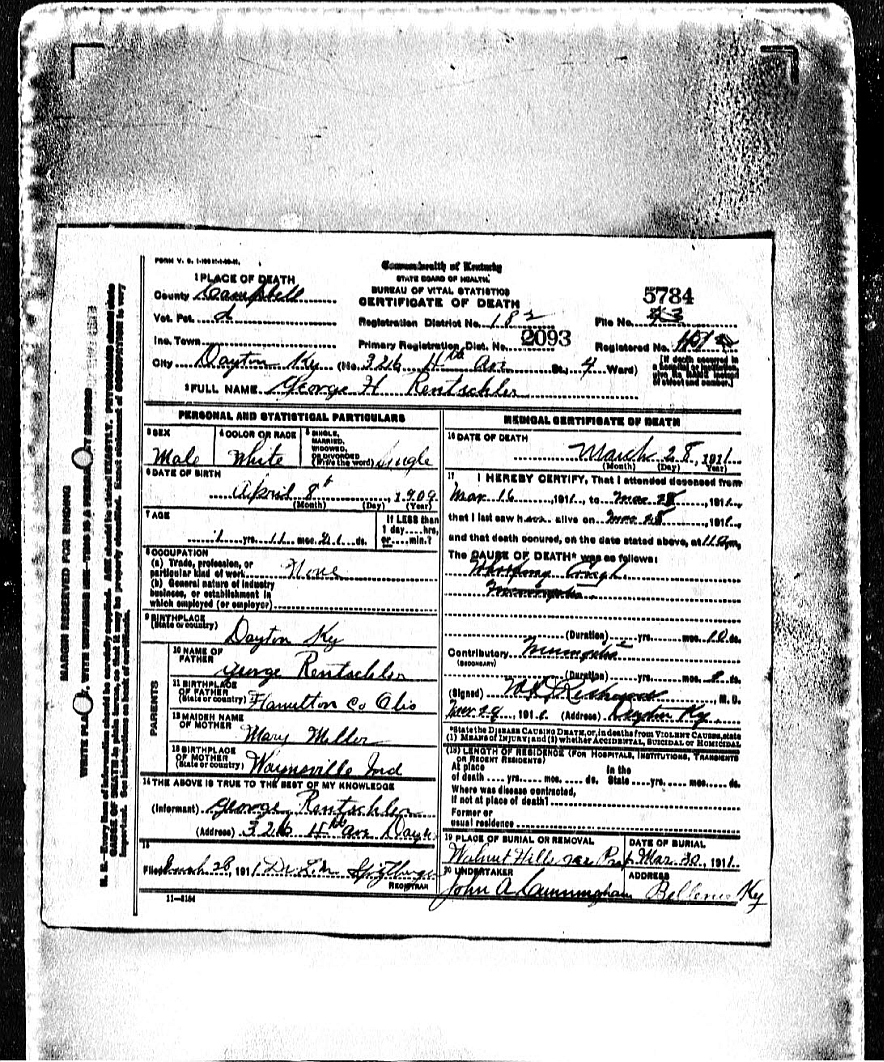 FORM V. S.
Commonwealth of Kentucky
STATE BOARD OF HEALTH.
BUREAU OF VITAL STATISTICS
CERTIFICATE OF DEATH
1 PLACE OF DEATH
County Campbell
Vot. Pct.
Registration District No. 182
File No. 5784
Inc. Town
Primary Registration Dist. No. 2093
Registered No.
City Dayton Ky (No. 326 4th Av St., 4 Ward)
[If death occurred in a hospital or institution give its NAME instead of street and number.]
2 FULL NAME George H Rentschler
PERSONAL AND STATISTICAL PARTICULARS
3 SEX
Male
4 COLOR OR RACE
White
5 SINGLE, MARRIED, WIDOWED, OR DIVORCED
(Write the word) Single
6 DATE OF BIRTH
April 8th, 1909
(Month) (Day) (Year)
7 AGE
1 yrs. 11 mos. 21 ds.
If LESS than 1 day....hrs. or....min.?
8 OCCUPATION
(a) Trade, profession, or
particular kind of work None
(b) General nature of industry
business, or establishment in
which employed (or employer)
9 BIRTHPLACE
(State or country) Dayton Ky
PARENTS
10 NAME OF FATHER
George Rentschler
11 BIRTHPLACE OF FATHER
(State or country) Hamilton Co Ohio
12 MAIDEN NAME OF MOTHER
Mary Miller
13 BIRTHPLACE OF MOTHER
(State or country) Waynsville Ind
14 THE ABOVE IS TRUE TO THE BEST OF MY KNOWLEDGE
(Informant) George Rentschler
(Address) 326 4th av
15
Filed March 28, 1911
REGISTRAR
11—5184
MEDICAL CERTIFICATE OF DEATH
16 DATE OF DEATH
March 28, 1911
(Month) (Day) (Year)
17 I HEREBY CERTIFY, That I attended deceased from
Mar 16, 1911, to Mar 28, 1911,
that I last saw h alive on Mar 28, 1911,
and that death occured, on the date stated above, at 11
The CAUSE OF DEATH* was as follows:
Whooping Cough
(Duration) yrs. mos. 10 ds.
Contributory
(SECONDARY)
(Duration) yrs. mos. ds.
(Signed) M. D.
191 (Address) Dayton Ky
*State the DISEASE CAUSING DEATH, or, in deaths from VIOLENT CAUSES, state
(1) MEANS OF INJURY; and (2) whether ACCIDENTAL, SUICIDAL OR HOMICIDAL
(18) LENGTH OF RESIDENCE (FOR HOSPITALS, INSTITUTIONS, TRANSIENTS
OR RECENT RESIDENTS)
At place In the
of death yrs. mos. ds. State yrs. mos. ds.
Where was disease contracted,
if not at place of death?
Former or
usual residence
19 PLACE OF BURIAL OR REMOVAL
Walnut Hills
DATE OF BURIAL
Mar. 30, 1911
20 UNDERTAKER
John A Cunningham
ADDRESS
Bellevue Ky
MARGIN RESERVED FOR BINDING